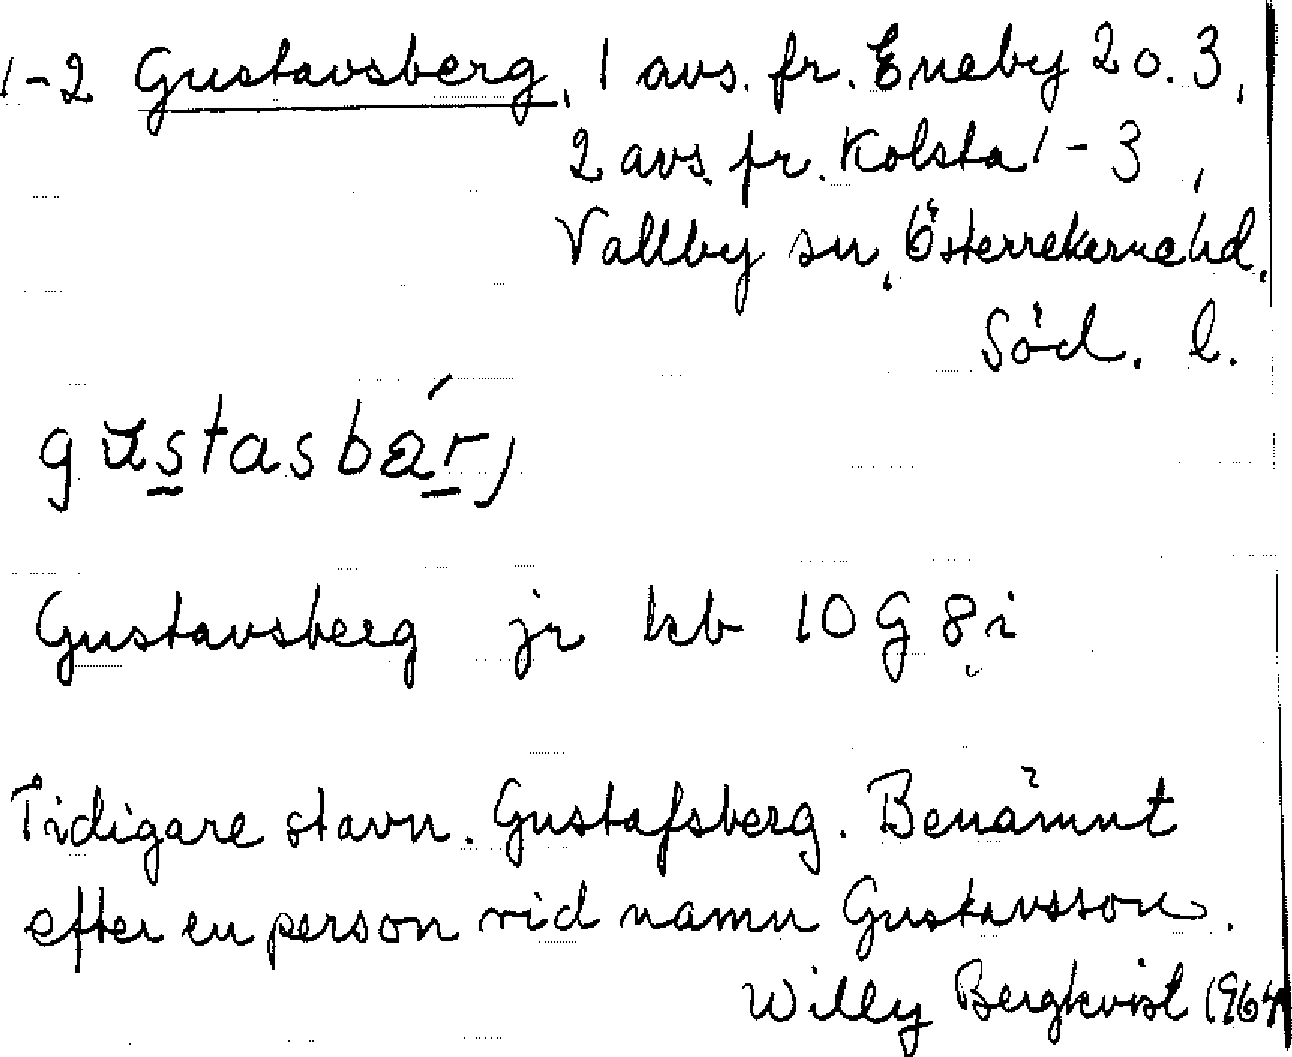 1-2 Gustavsberg, 1 avs. fr. Eneby 2 o. 3,
2 avs. fr. Kolsta 1-3,
Vallby sn, Österrekarne hd,
Söd. l.
gustasbárj
Gustavsberg jr kb 10 G 8 i
Tidigare stavn. Gustafsberg. Benämnt
efter en person vid namn Gustavsson.
Willy Bergkvist 1964